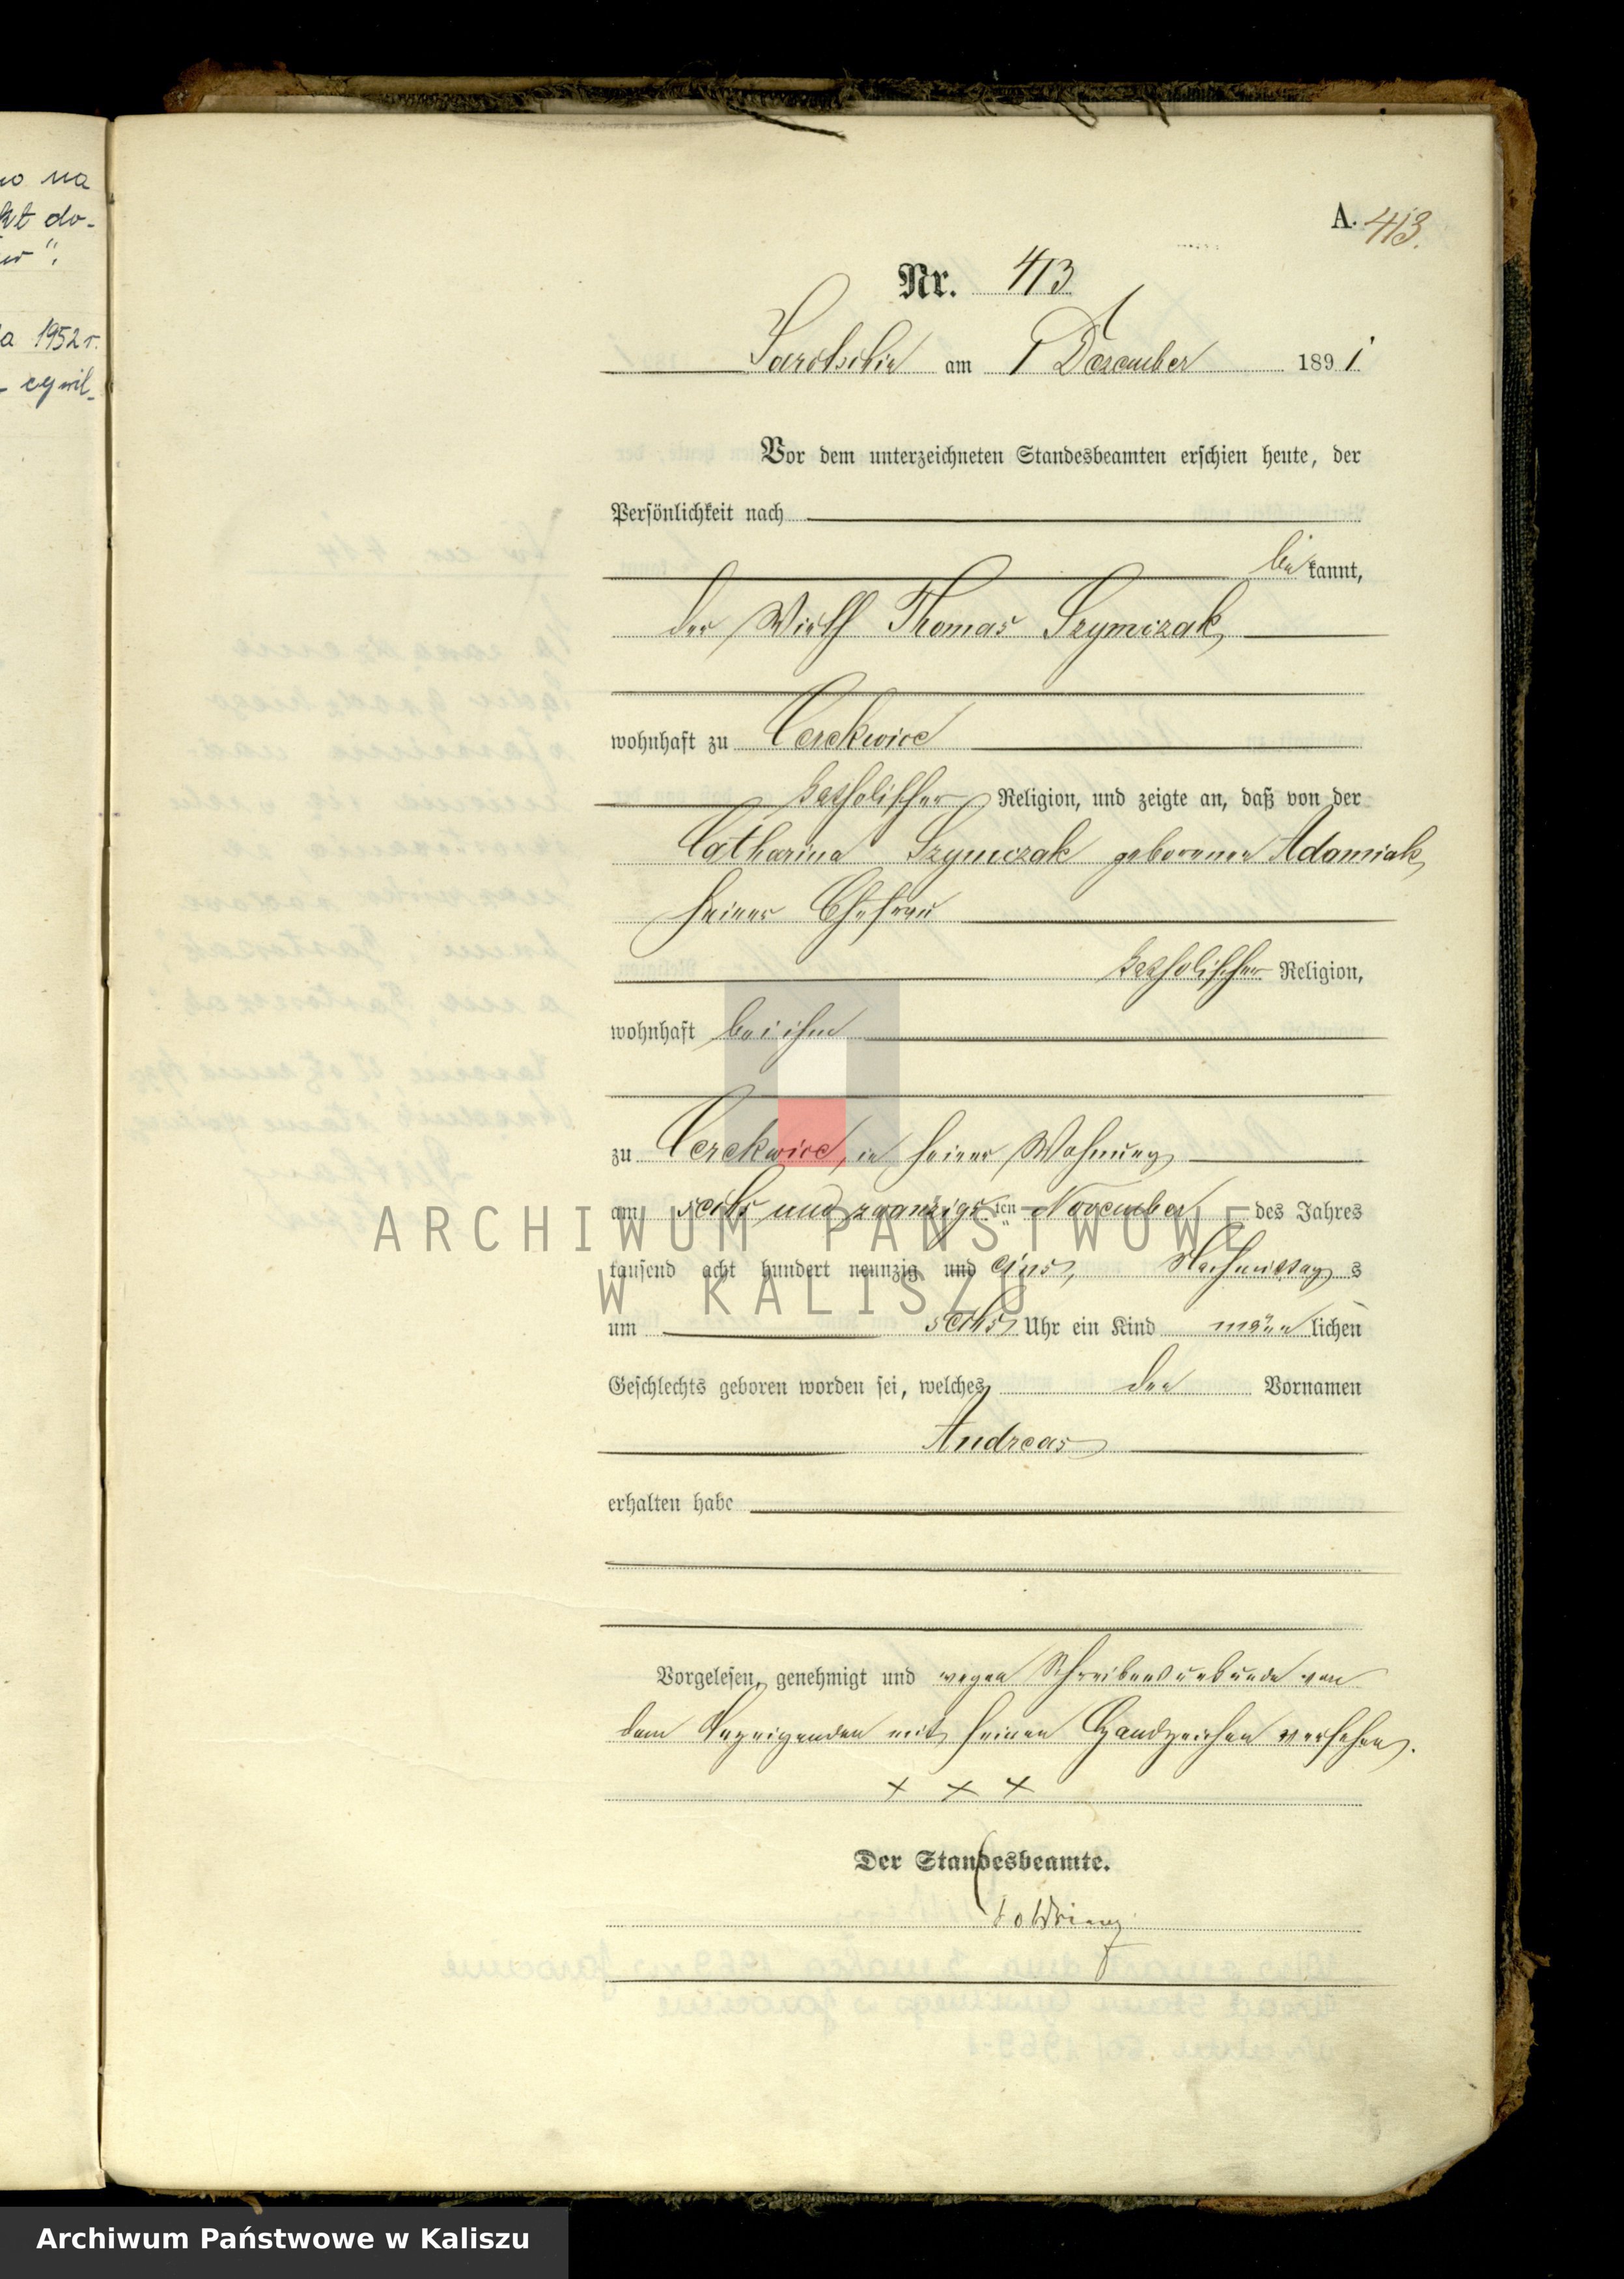 no na
kt do-
a 1952 r.
cywil-
A. 413.
Nr. 413
Jarotschin am 1 Dezember 1891
Vor dem unterzeichneten Standesbeamten erschien heute, der
Persönlichkeit nach
bekannt,
der Wirth Thomas Szymczak,
wohnhaft zu Cerekwice
katholischer Religion, und zeigte an, daß von der
Catharina Szymczak geborenen Adamiak,
seiner Ehefrau
katholischer Religion,
wohnhaft bei ihm
zu Cerekwice, in seiner Wohnung
am sechs und zwanzigsten November des Jahres
tausend acht hundert neunzig und eins, Nachmittags
um sechs Uhr ein Kind männlichen
Geschlechts geboren worden sei, welches den Vornamen
Andreas
erhalten habe
Vorgelesen, genehmigt und wegen Schreibensunkunde von
dem Anzeigenden mit seinen Handzeichen versehen.
+ + +
Der Standesbeamte.
ARCHIWUM PAŃSTWOWE
W KALISZU
Archiwum Państwowe w Kaliszu